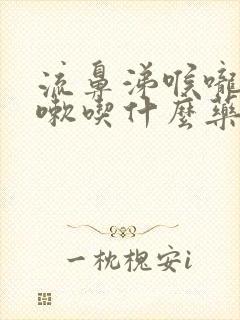 流鼻涕喉嚨
嗽喫什麼藥
一枕槐安i